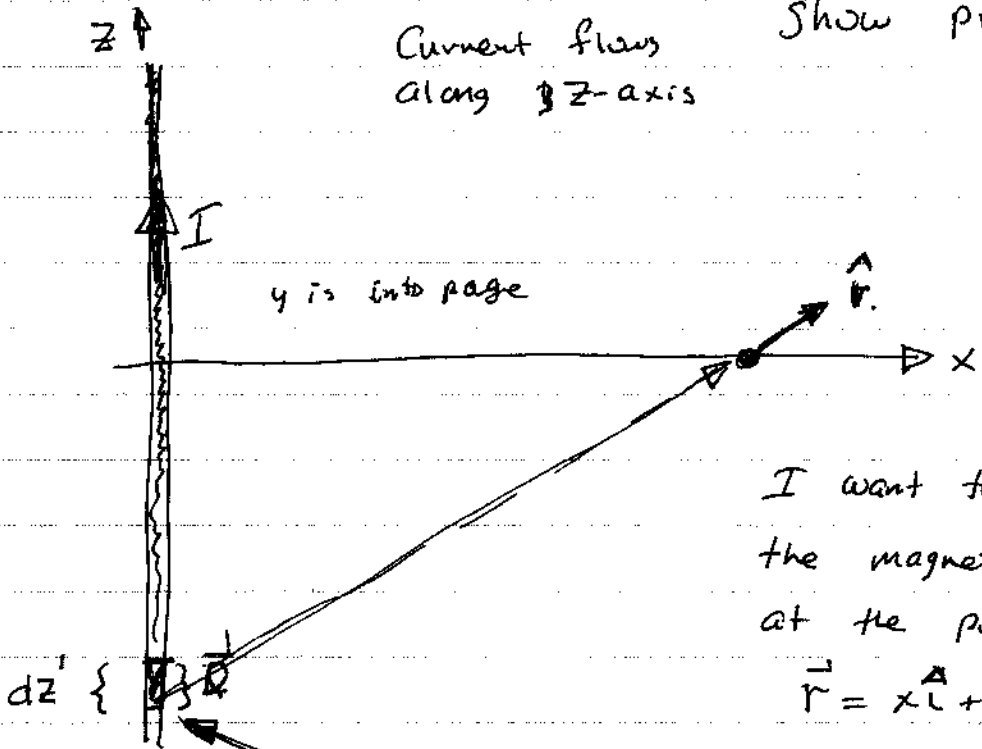 z
Current flows
along z-axis
Show
I
y is into page
r̂.
x
I want
the
at the
r⃗ = x î +
dz' {
}